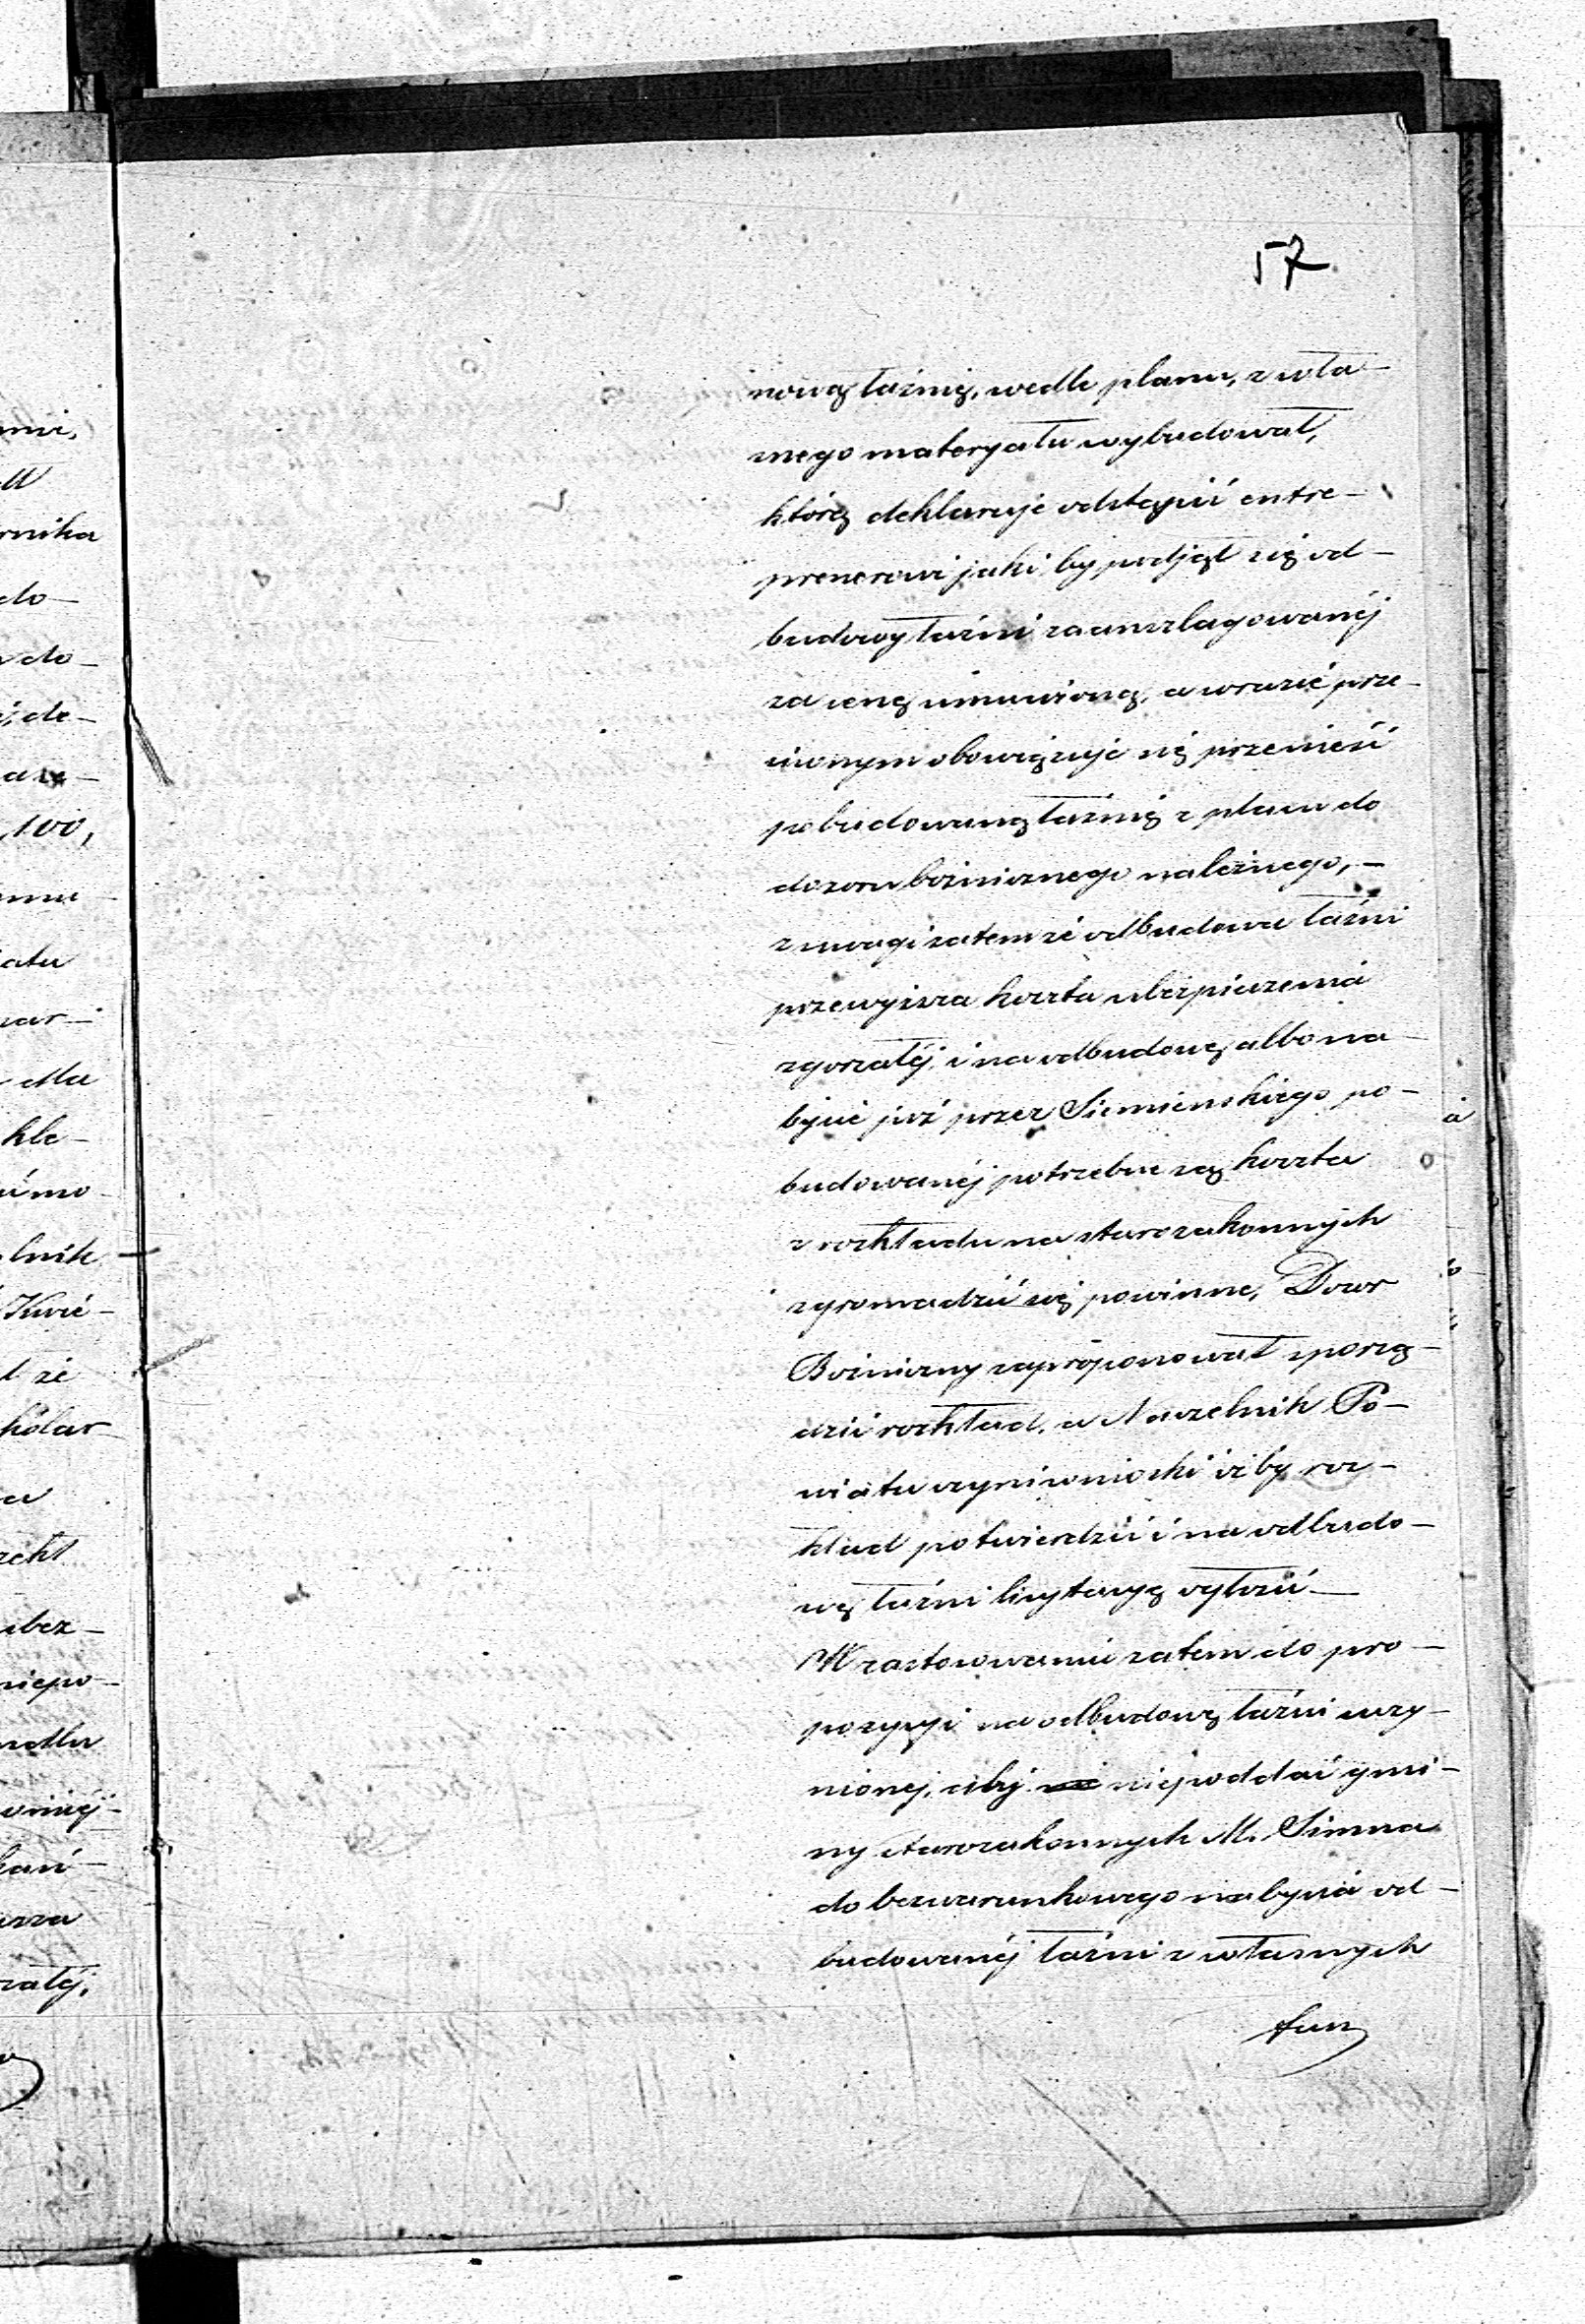 57
nową łaźnię, wedle planu, z wła-
snego materyału wybudował,
którą deklaruje odstąpić entre-
prenerowi jaki by podjął się od-
budowy łaźni zaanszlagowanéj
za cenę umówioną, a w razie prze-
ciwnym obowiązuje się przenieść
pobudowaną łaźnię z placu do
dozoru bożnicznego należnego, -
z uwagi zatem że odbudowa łaźni
przewyższa koszta ubezpieczenia
zgorzałéj, i na odbudowę albo na-
bycie już przez Siemienskiego po-
budowanéj potrzebne są koszta
z rozkładu na starozakonnych
zgromadzić się powinne, Dozor
Bożniczny zaproponował sporzą-
dzić rozkład, a Naczelnik Po-
wiatu czyni wnioski iż by roz-
kład potwierdzić i na odbudo-
wę łaźni licytacyę ogłosić -
W zastosowaniu zatem do pro-
pozycyi na odbudowę łaźni uczy-
nionej, aby niepoddać gmi-
ny starozakonnych M. Simna
do bezwarunkowego nabycia od-
budowanéj łaźni z własnych
fun
mi,
rnika
do-
do-
de-
100,
atu
dla
kle-
lnik
że
kolar
ubez-
niepo-
załéj,